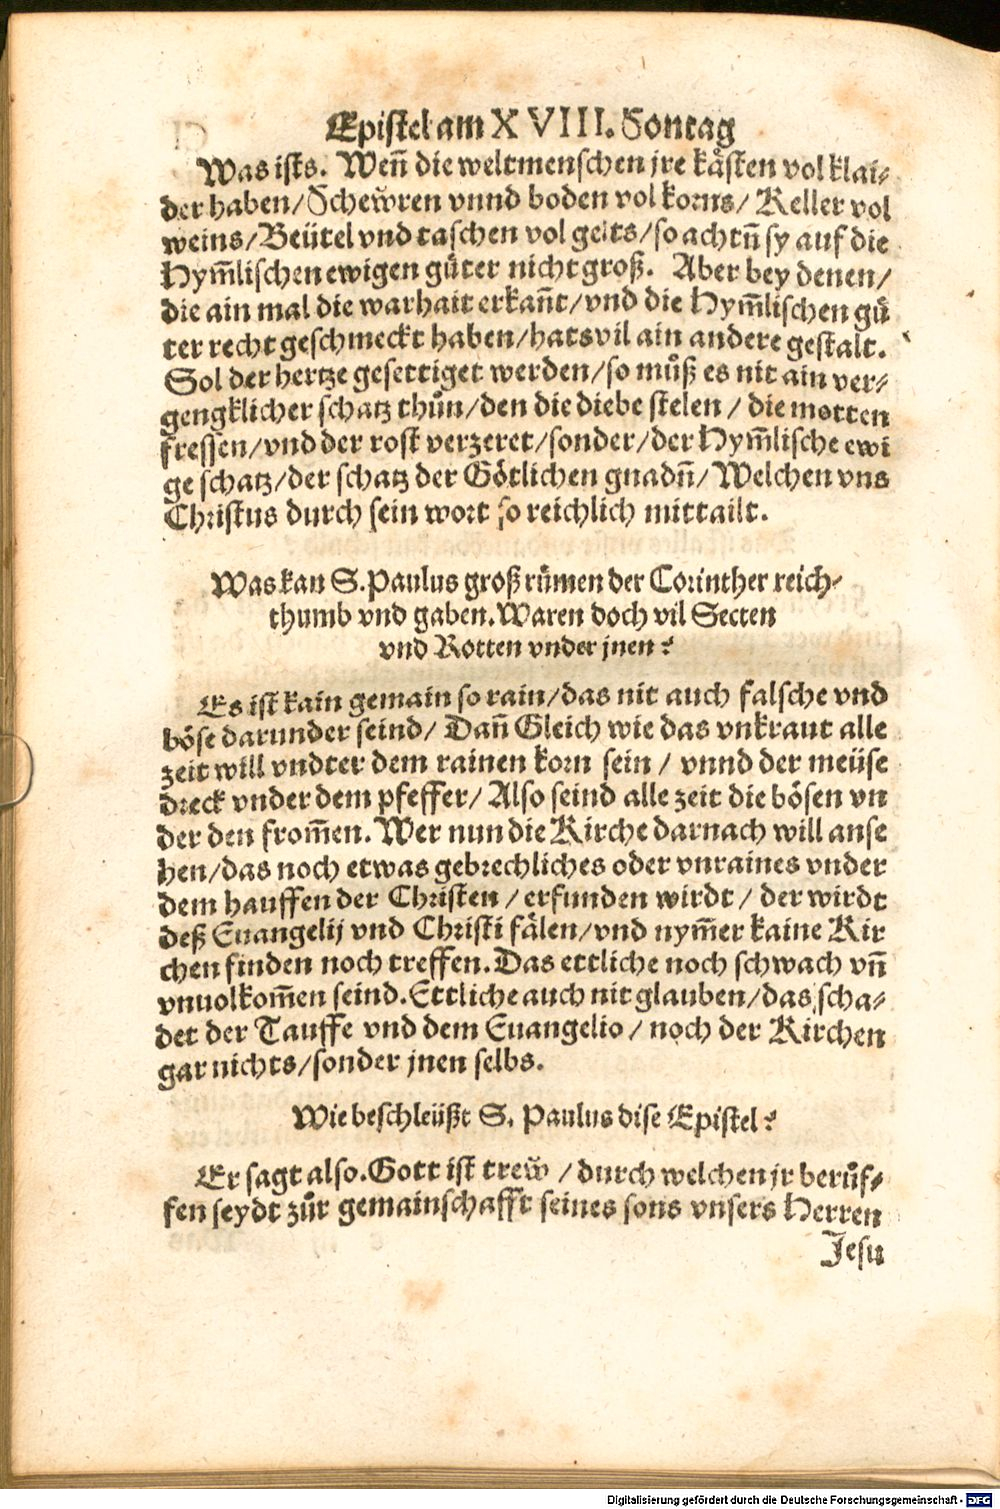 Epistel am XVIII. Sontag
Was ists. Weñ die weltmenschen jre kästen vol klai-
der haben/Schew̆ren vnnd boden vol korns/ Keller vol
weins/Beütel vnd taschen vol gelts/so achtñ sy auf die
Hym̃lischen ewigen gůter nicht groß. Aber bey denen/
die ain mal die warhait erkañt/vnd die Hym̃lischen gů
ter recht geschmeckt haben/hats vil ain andere gestalt.
Sol der hertze gesettiget werden/so můß es nit ain ver-
gengklicher schatz thůn/den die diebe stelen / die motten
fressen/vnd der rost verzeret/sonder/der Hym̃lische ewi
ge schatz/der schatz der Götlichen gnadñ/ Welchen vns
Christus durch sein wort so reichlich mittailt.
Was kan S. Paulus groß růmen der Corinther reich-
thumb vnd gaben. Waren doch vil Secten
vnd Rotten vnder jnen?
Es ist kain gemain so rain/das nit auch falsche vnd
böse darunder seind/ Dañ Gleich wie das vnkraut alle
zeit will vndter dem rainen korn sein / vnnd der meüse
dreck vnder dem pfeffer/ Also seind alle zeit die bösen vn
der den from̃en. Wer nun die Kirche darnach will anse
hen/das noch etwas gebrechliches oder vnraines vnder
dem hauffen der Christen / erfunden wirdt / der wirdt
deß Euangelij vnd Christi fälen/vnd nym̃er kaine Kir
chen finden noch treffen. Das ettliche noch schwach vñ
vnuolkom̃en seind. Ettliche auch nit glauben/das scha-
det der Tauffe vnd dem Euangelio / noch der Kirchen
gar nichts/sonder jnen selbs.
Wie beschleüßt S. Paulus dise Epistel?
Er sagt also. Gott ist trew̆ / durch welchen jr berůf-
fen seydt zůr gemainschafft seines sons vnsers Herren
Jesu
Digitalisierung gefördert durch die Deutsche Forschungsgemeinschaft - DFG